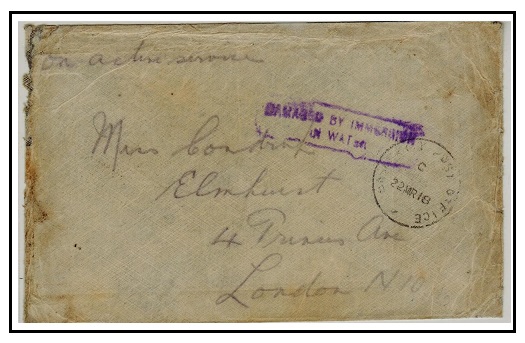 on active service
DAMAGED BY IMMERSION
IN WATER
Miss
Elmhurst
4 Princes Ave
London N10
POST OFFICE
C
22MR18